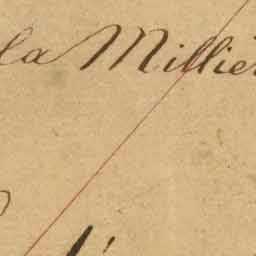 la Millie